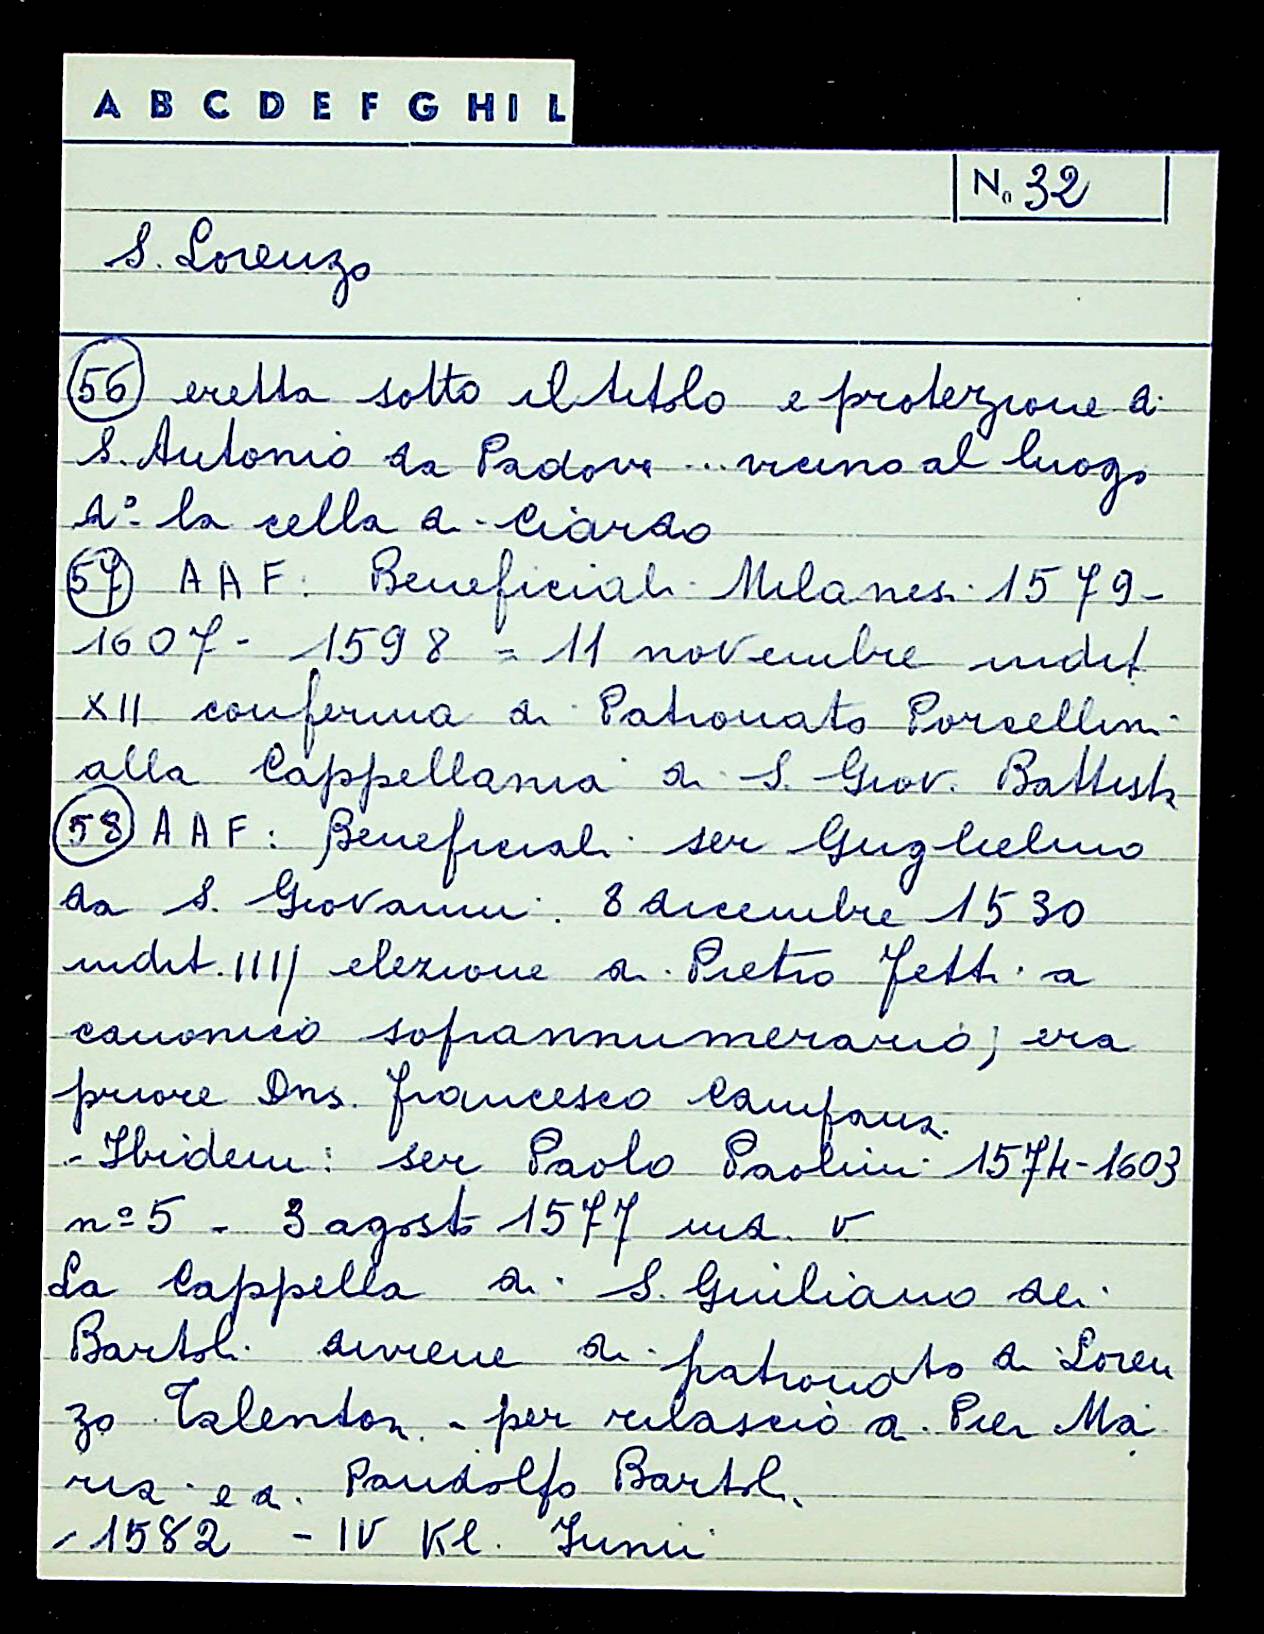 A B C D E F G H I L
N. 32
S. Lorenzo
56 eretta sotto il titolo e protezione di
S. Antonio da Padova ... vicino al luogo
d.º la cella di Ciardo
57 A A F: Beneficiali Milanesi 1579-
1607 - 1598 = 11 novembre indit.
XII conferma di Patronato Porcellini
alla Cappellania di S. Giov. Battista
58 A A F: Beneficiali ser Guglielmo
da S. Giovanni: 8 dicembre 1530
indit. IIII elezione di Pietro Fetti a
canonico soprannumerario; era
priore Dns. Francesco Campana.
- Ibidem: ser Paolo Paolini 1574-1603
nº 5 - 3 agosto 1577 ind. V
La Cappella di S. Giuliano dei
Bartoli diviene di patronato di Loren
zo Talentoni - per rilascio di Pier Ma
ria e di Pandolfo Bartoli.
- 1582 - IV Kl. Junii